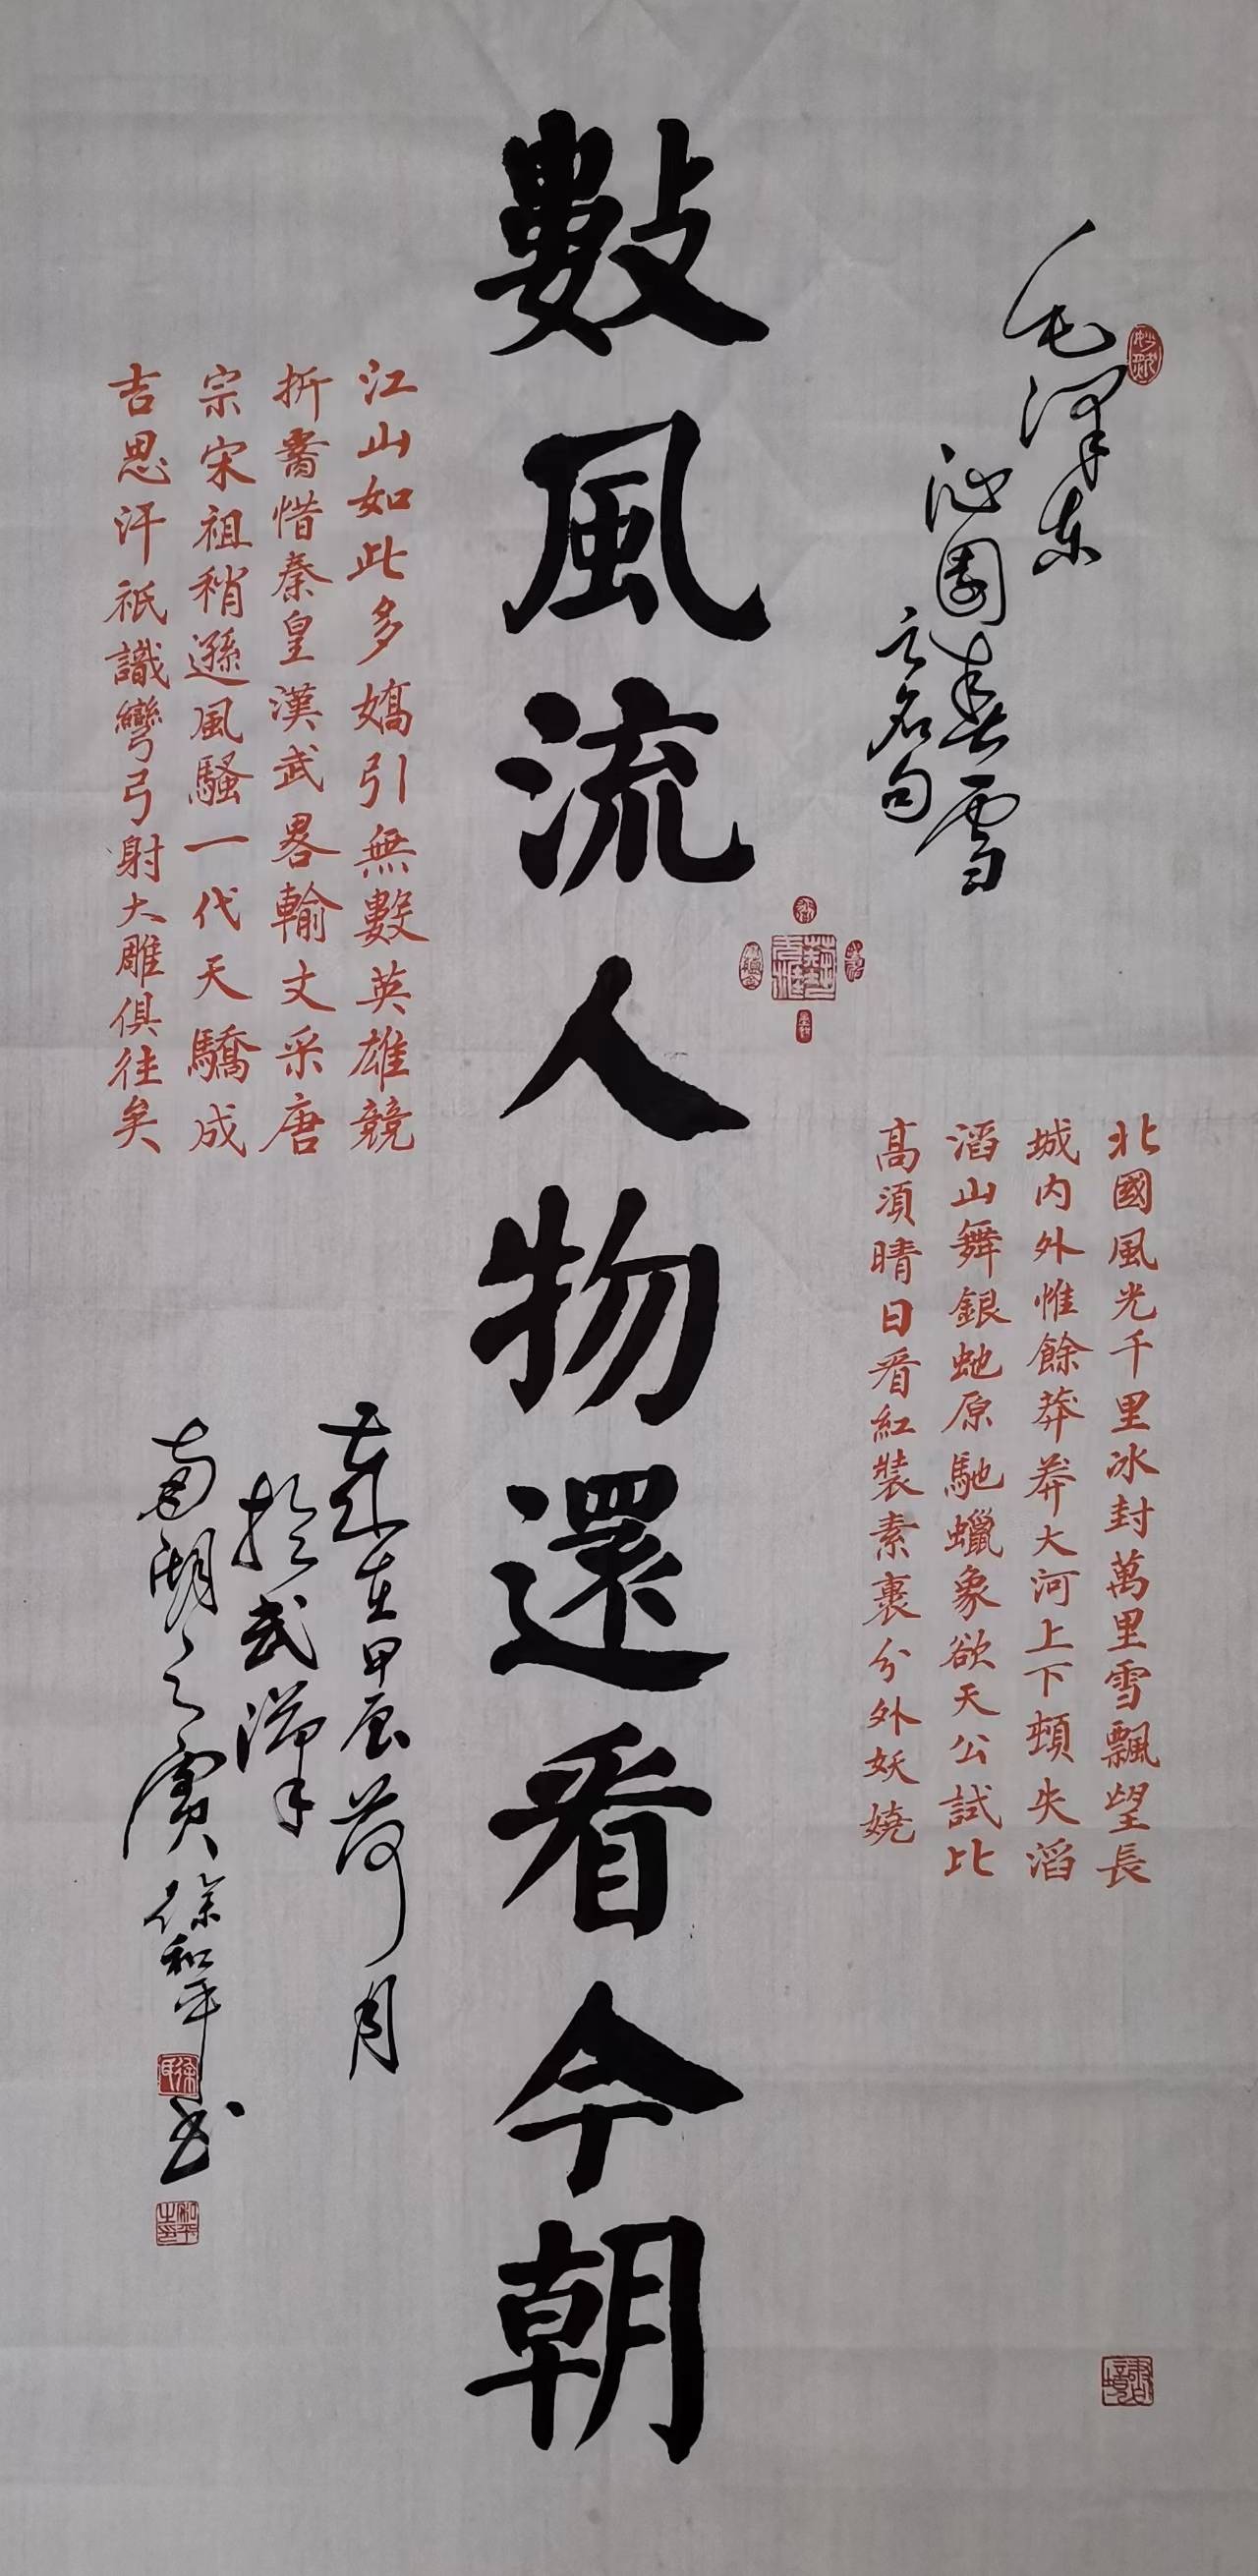 毛澤東
沁園春雪
之名句
北國風光千里冰封萬里雪飄望長
城内外惟餘莽莽大河上下頓失滔
滔山舞銀虵原馳蠟象欲天公試比
高須晴日看紅裝素裹分外妖嬈
數風流人物還看今朝
江山如此多嬌引無數英雄競
折腰惜秦皇漢武畧輸文采唐
宗宋祖稍遜風騷一代天驕成
吉思汗祇識彎弓射大雕俱往矣
歲在甲辰荷月
於武漢
南湖之濱徐和平書